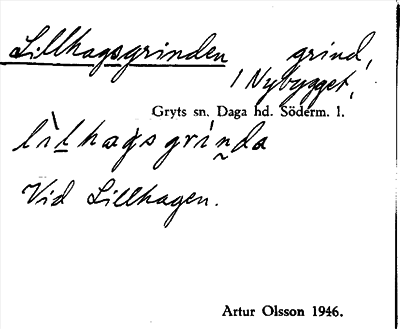 Lillhagsgrinden grind,
1 Nybygget,
Gryts sn. Daga hd. Söderm. l.
lìlhagsgrinda
Vid Lillhagen.
Artur Olsson 1946.